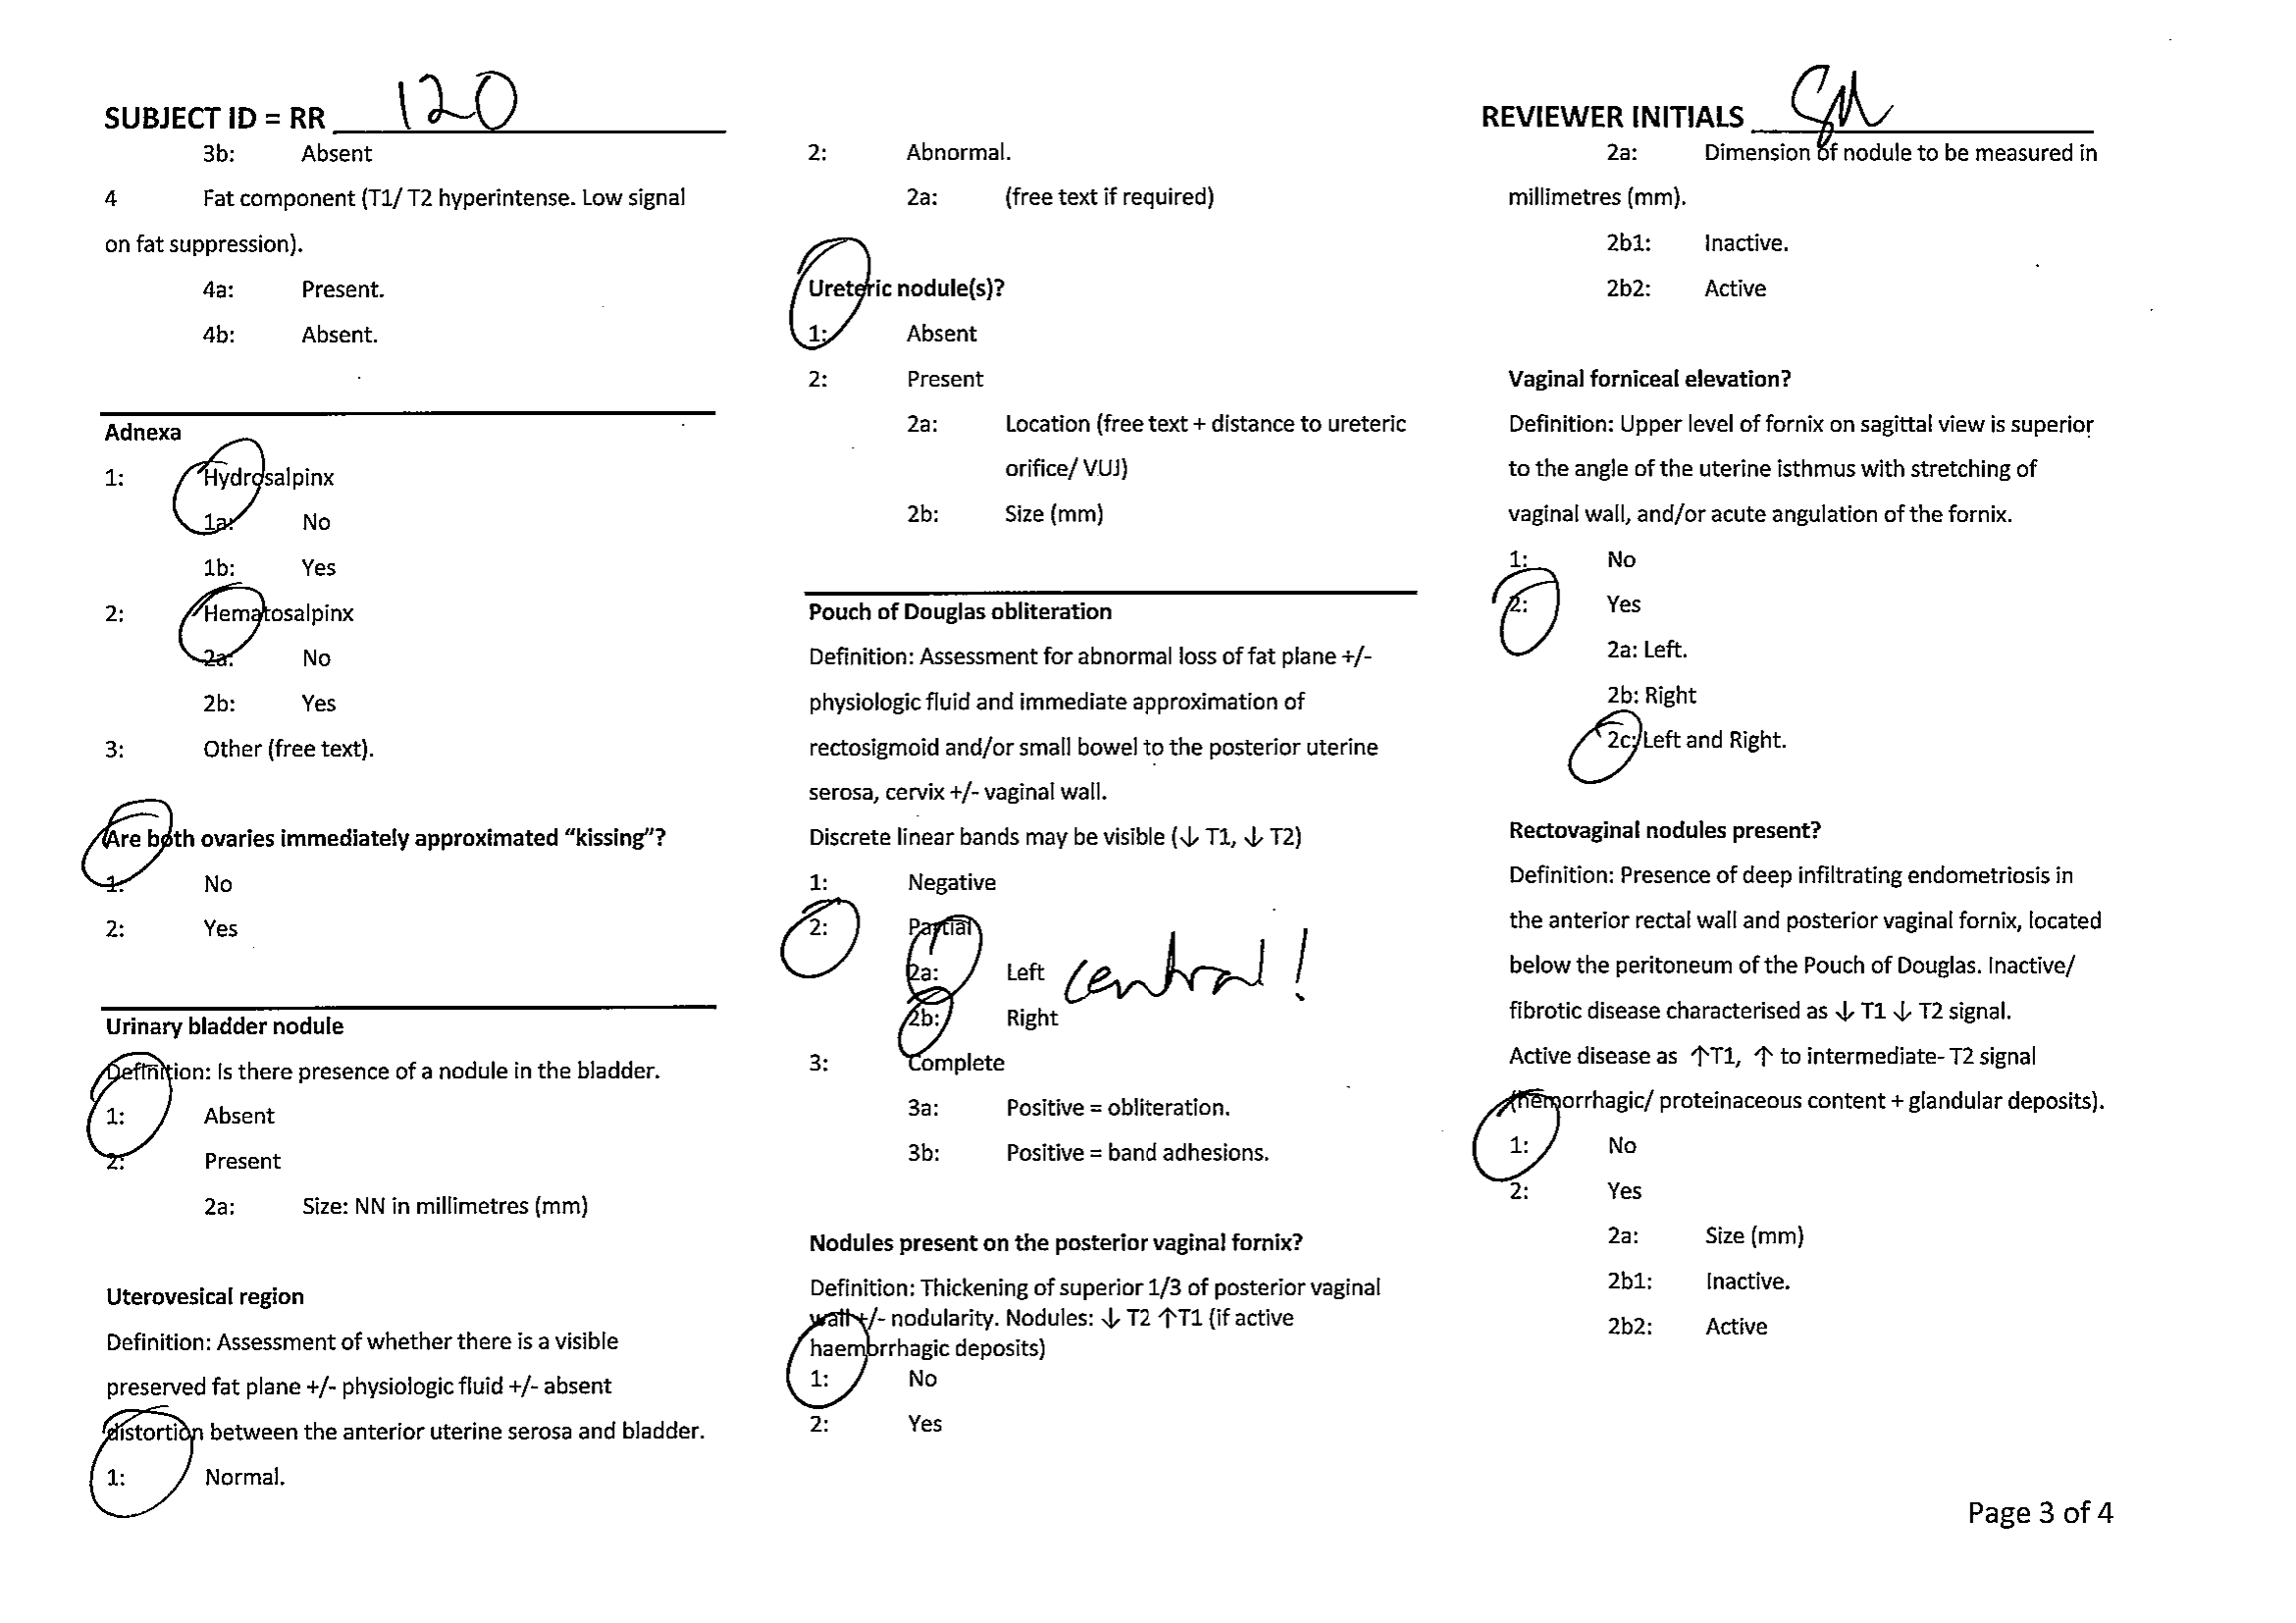 SUBJECT ID = RR 120
3b: Absent
4 Fat component (T1/ T2 hyperintense. Low signal
on fat suppression).
4a: Present.
4b: Absent.
Adnexa
1: Hydrosalpinx
1a: No
1b: Yes
2: Hematosalpinx
2a: No
2b: Yes
3: Other (free text).
Are both ovaries immediately approximated “kissing”?
1: No
2: Yes
Urinary bladder nodule
Definition: Is there presence of a nodule in the bladder.
1: Absent
2: Present
2a: Size: NN in millimetres (mm)
Uterovesical region
Definition: Assessment of whether there is a visible
preserved fat plane +/- physiologic fluid +/- absent
distortion between the anterior uterine serosa and bladder.
1: Normal.
2: Abnormal.
2a: (free text if required)
Ureteric nodule(s)?
1: Absent
2: Present
2a: Location (free text + distance to ureteric
orifice/ VUJ)
2b: Size (mm)
Pouch of Douglas obliteration
Definition: Assessment for abnormal loss of fat plane +/-
physiologic fluid and immediate approximation of
rectosigmoid and/or small bowel to the posterior uterine
serosa, cervix +/- vaginal wall.
Discrete linear bands may be visible (↓ T1, ↓ T2)
1: Negative
2: Partial
2a: Left central!
2b: Right
3: Complete
3a: Positive = obliteration.
3b: Positive = band adhesions.
Nodules present on the posterior vaginal fornix?
Definition: Thickening of superior 1/3 of posterior vaginal
wall +/- nodularity. Nodules: ↓ T2 ↑T1 (if active
haemorrhagic deposits)
1: No
2: Yes
REVIEWER INITIALS SM
2a: Dimension of nodule to be measured in
millimetres (mm).
2b1: Inactive.
2b2: Active
Vaginal forniceal elevation?
Definition: Upper level of fornix on sagittal view is superior
to the angle of the uterine isthmus with stretching of
vaginal wall, and/or acute angulation of the fornix.
1: No
2: Yes
2a: Left.
2b: Right
2c: Left and Right.
Rectovaginal nodules present?
Definition: Presence of deep infiltrating endometriosis in
the anterior rectal wall and posterior vaginal fornix, located
below the peritoneum of the Pouch of Douglas. Inactive/
fibrotic disease characterised as ↓ T1 ↓ T2 signal.
Active disease as ↑T1, ↑ to intermediate- T2 signal
(hemorrhagic/ proteinaceous content + glandular deposits).
1: No
2: Yes
2a: Size (mm)
2b1: Inactive.
2b2: Active
Page 3 of 4